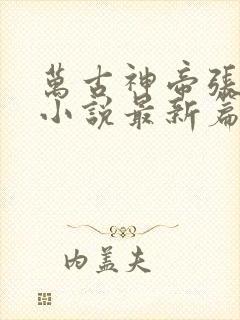 萬古神帝張
小說最新篇
内蓋夫